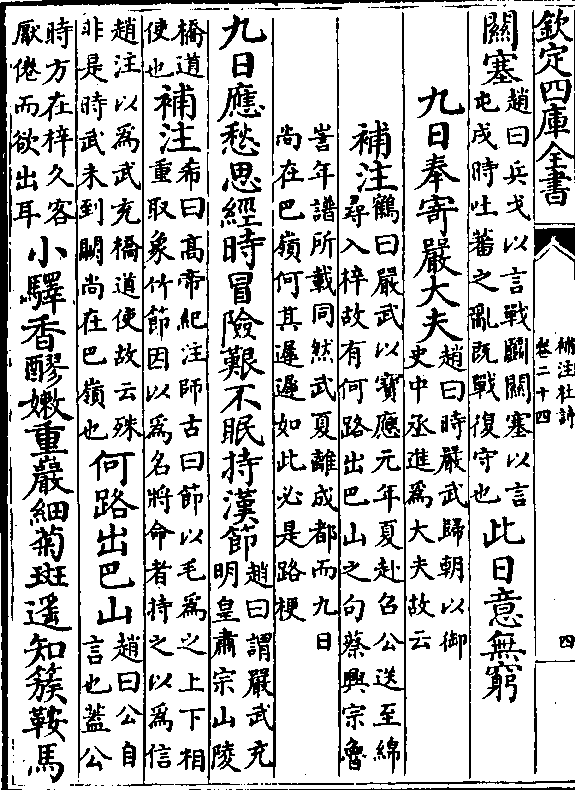 欽定四庫全書
補注杜詩
卷二十四
四
關塞
趙曰兵戈以言戰鬭關塞以言
屯戍時吐蕃之亂既戰復守也
此日意無窮
九日奉寄嚴大夫
趙曰時嚴武歸朝以御
史中丞進為大夫故云
補注
鶴曰嚴武以寶應元年夏赴召公送至綿
尋入梓故有何路出巴山之句蔡興宗魯
訔年譜所載同然武夏離成都而九日
尚在巴嶺何其遲遲如此必是路梗
九日應愁思經時冒險艱不眠持漢節
趙曰謂嚴武充
明皇肅宗山陵
橋道
使也
補注
希曰高帝紀注師古曰節以毛為之上下相
重取象竹節因以為名將命者持之以為信
趙注以為武充橋道使故云殊
非是時武未到闕尚在巴嶺也
何路出巴山
趙曰公自
言也蓋公
時方在梓久客
厭倦而欲出耳
小驛香醪嫩重巖細菊斑遥知簇鞍馬